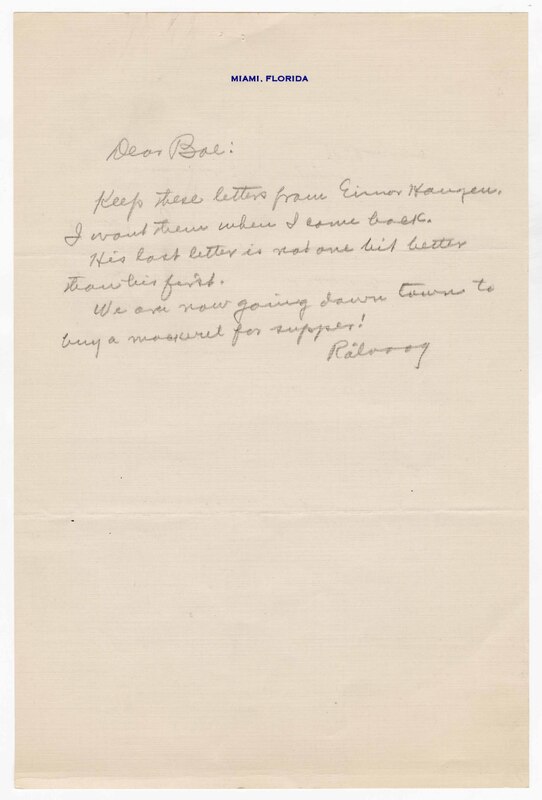 MIAMI, FLORIDA
Dear Boe:
Keep these letters from Einar Haugen.
I want them when I come back.
His last letter is not one bit better
than his first.
We are now going down town to
buy a mackerel for supper!
Rölvaag